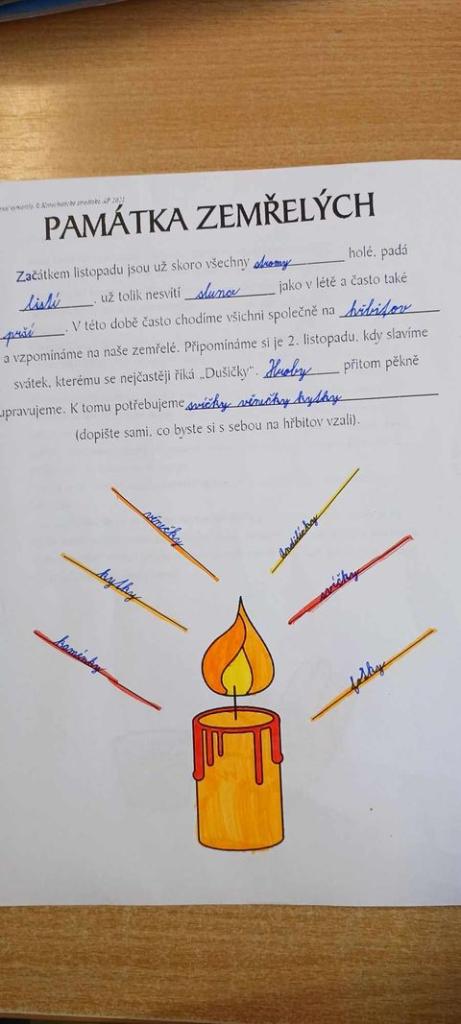 PAMÁTKA ZEMŘELÝCH
Začátkem listopadu jsou už skoro všechny stromy holé, padá
listí, už tolik nesvítí slunce jako v létě a často také
prší. V této době často chodíme všichni společně na hřbitov
a vzpomínáme na naše zemřelé. Připomínáme si je 2. listopadu, kdy slavíme
svátek, kterému se nejčastěji říká „Dušičky“. Hroby přitom pěkně
upravujeme. K tomu potřebujeme svíčky věnečky kytky
(dopište sami, co byste si s sebou na hřbitov vzali).
věnečky
andílčky
kytky
svíčky
kamínky
fotky